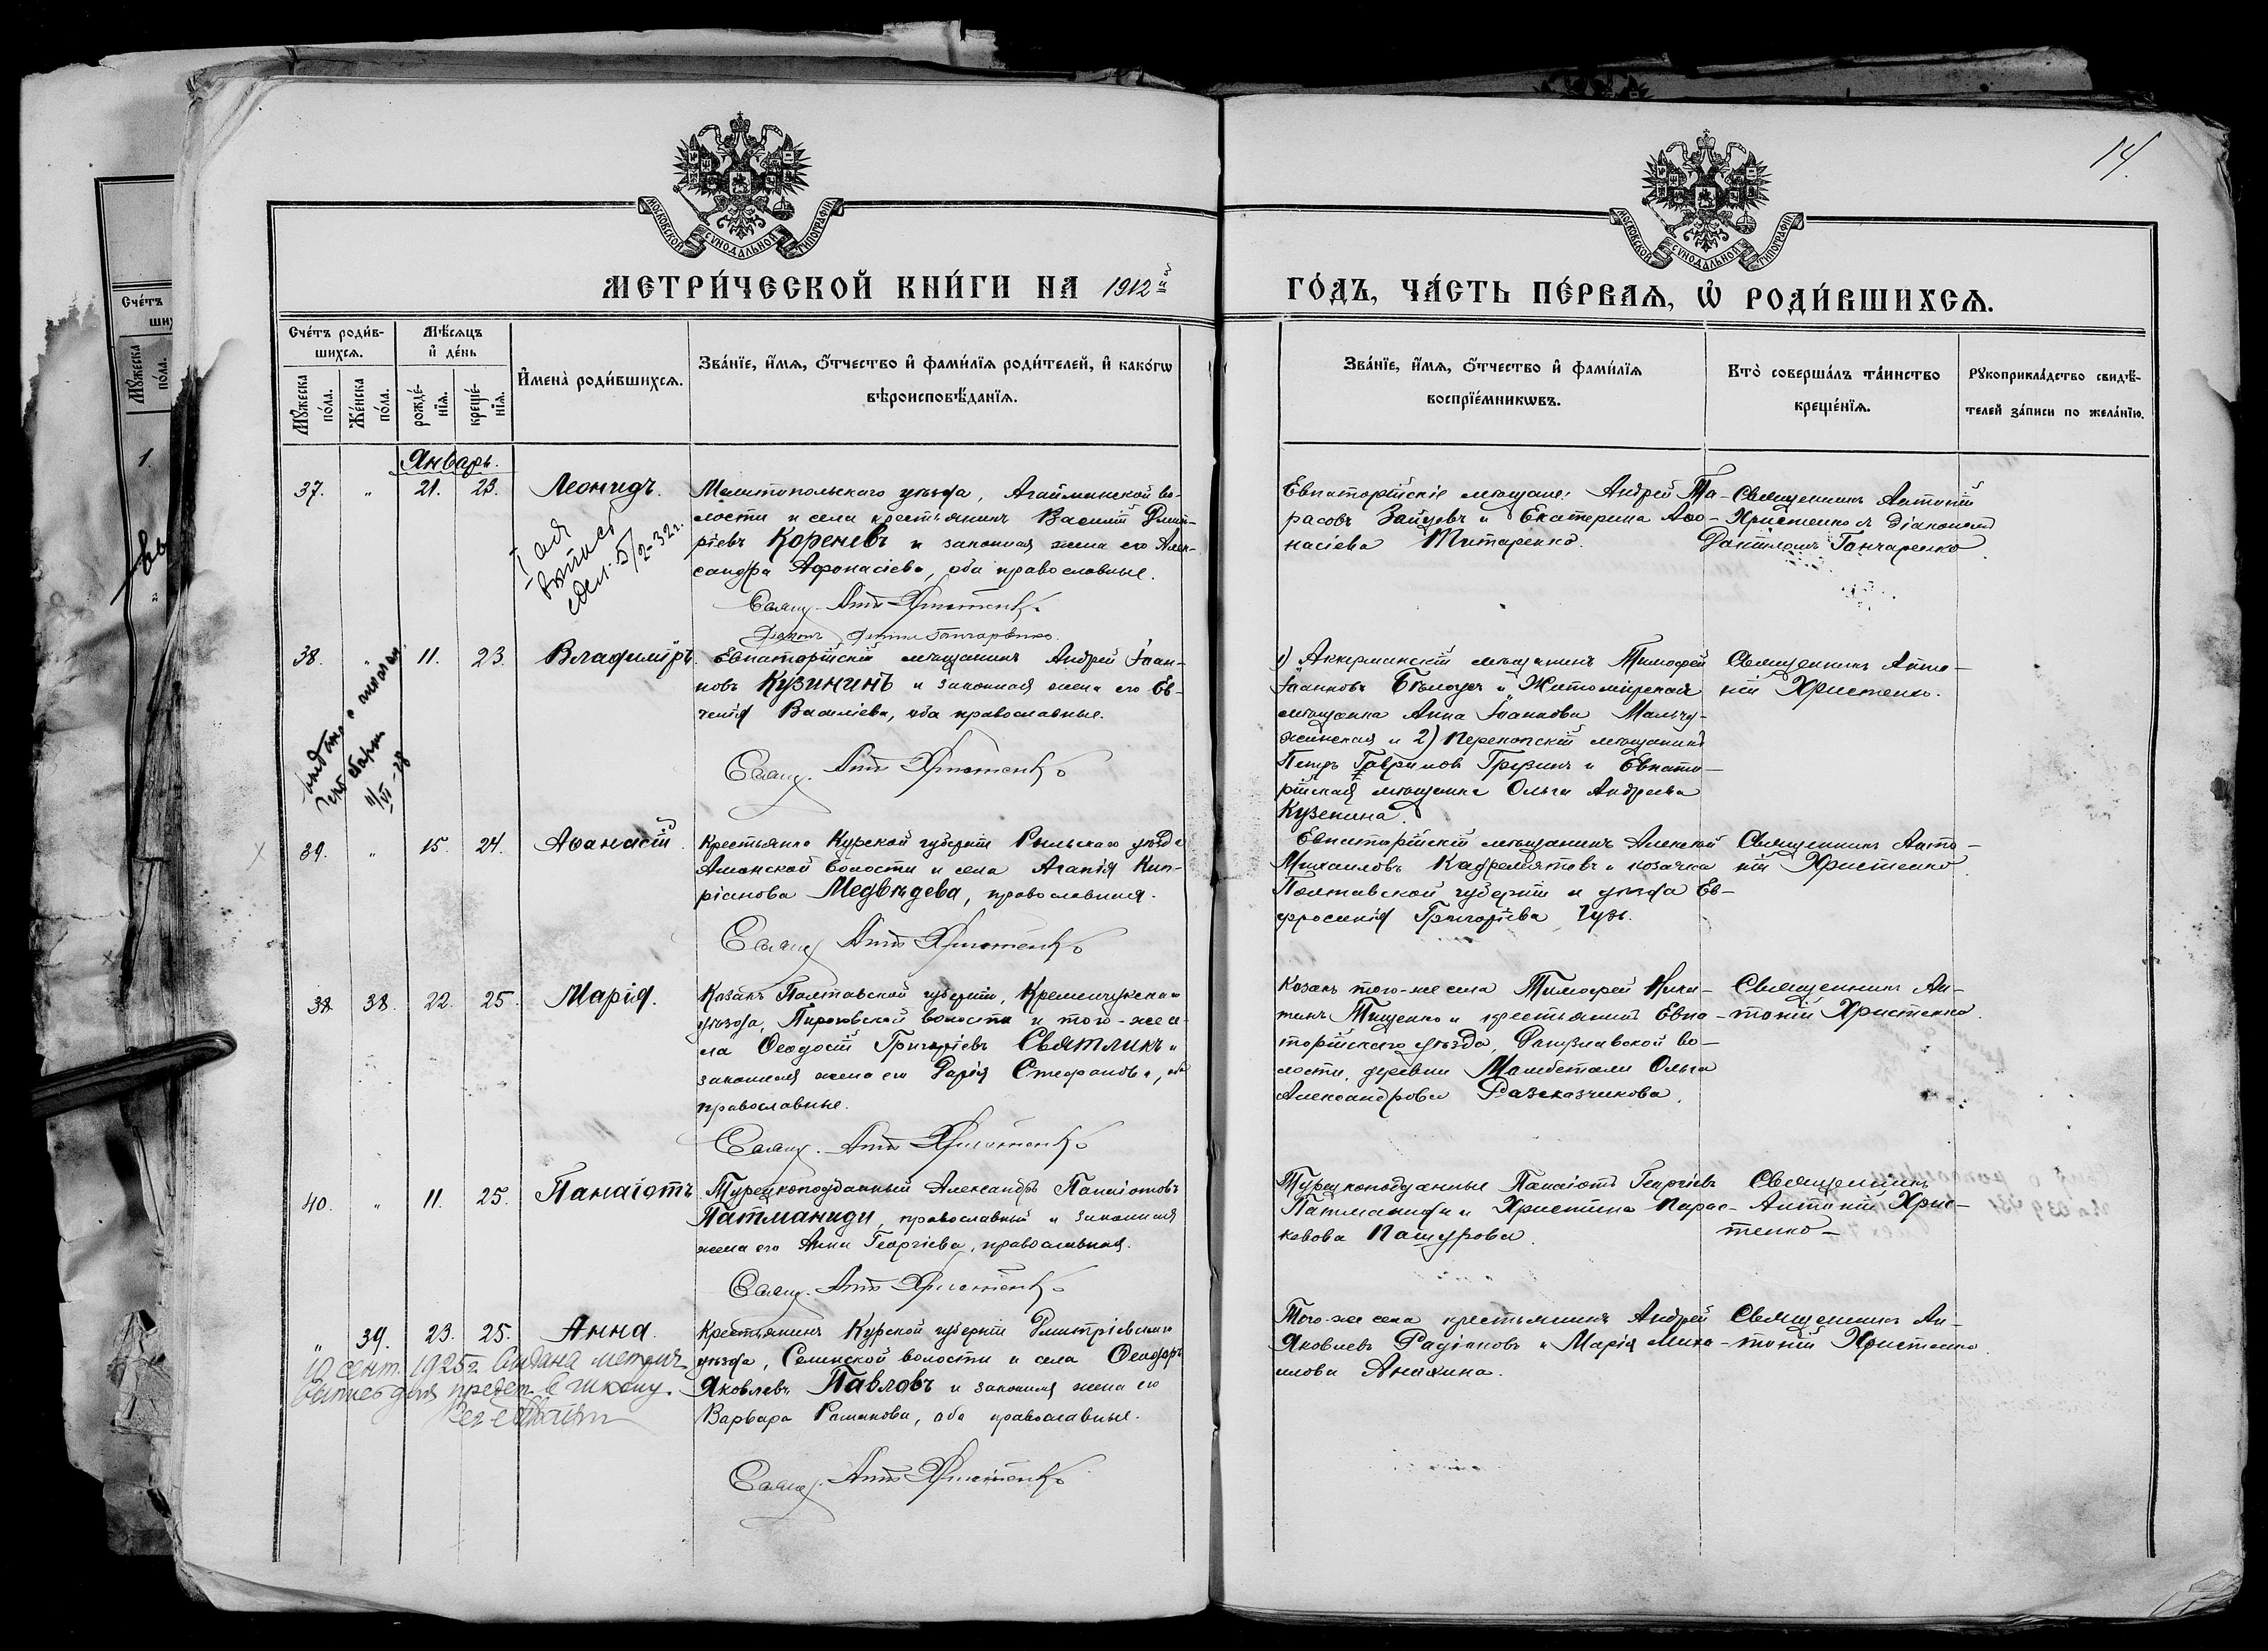 14.
МОСКОВСКОЙ СУНОДАЛЬНОЙ ТИПОГРАФІИ
МОСКОВСКОЙ СУНОДАЛЬНОЙ ТИПОГРАФІИ
МЕТРИ́ЧЕСКОЙ КНИ́ГИ НА 1912й
ГО́ДЪ, ЧА́СТЬ ПЕ́РВАЯ, Ѿ РОДИ́ВШИХСЯ.
Сче́тъ роди́в-
шихся.
Мꙋ́жеска по́ла.
Же́нска по́ла.
Мѣ́сяцъ
и҆ де́нь
рожде́-нїя.
креще́-нїя.
И҆мена̀ роди́вшихся.
Зва́нїе, и҆́мя, ѻ҆́тчество и҆ фами́лїя роди́телей, и҆ како́гѡ
вѣроисповѣ́данїя.
Зва́нїе, и҆́мя, ѻ҆́тчество и҆ фами́лїя
воспрїе́мникѡвъ.
Кто̀ соверша́лъ та́инство
креще́нїя.
Рꙋкоприкла́дство свидѣ́-
телей за́писи по жела́нїю.
Январь.
37. " 21. 23. Леонидъ.
Мелитопольскаго уѣзда, Агайманской во-
лости и села крестьянинъ Василій Дмит-
ріевъ Кореневъ и законная жена его Алек-
сандра Афонасіева, оба православные.
Свящ. Ант Христенко
Діаконъ Гончаренко.
выпись
5/2-32 г.
Евпаторійскіе мѣщане: Андрей Та-
расовъ Зайцевъ и Екатерина Афо-
насіева Титаренко.
Священникъ Антоній
Христенко съ Діакономъ
Даниломъ Гончаренко.
38. " 11. 23. Владиміръ.
Евпаторійскій мѣщанинъ Андрей Іоан-
новъ Кузининъ и законная жена его Ев-
генія Василіева, оба православные.
Свящ. Ант Христенко
1) Аккерманскій мѣщанинъ Тимофей
Іоанновъ Бѣлоусъ и Житомирская
мѣщанка Анна Іоаннова Мальчу-
жинская и 2) Перекопскій мѣщанинъ
Петръ Гавриловъ Грезинъ и Евпато-
рійская мѣщанка Ольга Андреева
Кузенина.
Священникъ Анто-
ній Христенко.
39. " 15. 24. Аѳанасій.
Крестьянка Курской губерніи Рыльскаго уѣзда
Амонской волости и села Агапія Кип-
ріанова Медвѣдева, православная.
Свящ Ант Христенко
Евпаторійскій мѣщанинъ Алексѣй
Михаиловъ Кадремятовъ и козачка
Полтавской губерніи и уѣзда Ев-
фросинія Григоріева Гузь.
Священникъ Анто-
ній Христенко.
38 38. 22. 25. Марія.
Козакъ Полтавской губерніи, Кременчугскаго
уѣзда, Пироговской волости и того-же се-
ла Ѳеодосій Григоріевъ Святликъ и
законная жена его Дарія Стефанова, оба
православные.
Свящ. Ант Христенко
Козакъ того-же села Тимофей Ники-
тинъ Тищенко и крестьянка Евпа-
торійскаго уѣзда, Донузлавской во-
лости, деревни Мамбетали Ольга
Александрова Разсказчикова.
Священникъ Ан-
тоній Христенко.
40. " 11. 25. Панаіотъ
Турецкоподданный Александръ Панаіотовъ
Патманиди, православный и законная
жена его Анна Георгіева, православная.
Свящ. Ант Христенко
Турецкоподданные Панаіотъ Георгіевъ
Патманиди и Христина Парас-
кевова Пашурова.
Священникъ
Антоній Хрис-
тенко
" 39. 23. 25. Анна.
Крестьянинъ Курской губерніи Дмитріевскаго
уѣзда, Селинской волости и села Ѳеодоръ
Яковлевъ Павловъ и законная жена его
Варвара Романова, оба православные.
Свящ. Ант Христенко
10 сент. 1925г. выдана метрич.
выпись для предст. в школу.
Того-же села крестьянинъ Андрей
Яковлевъ Радіоновъ и Марія Миха-
илова Анихина.
Священникъ Ан-
тоній Христенко.